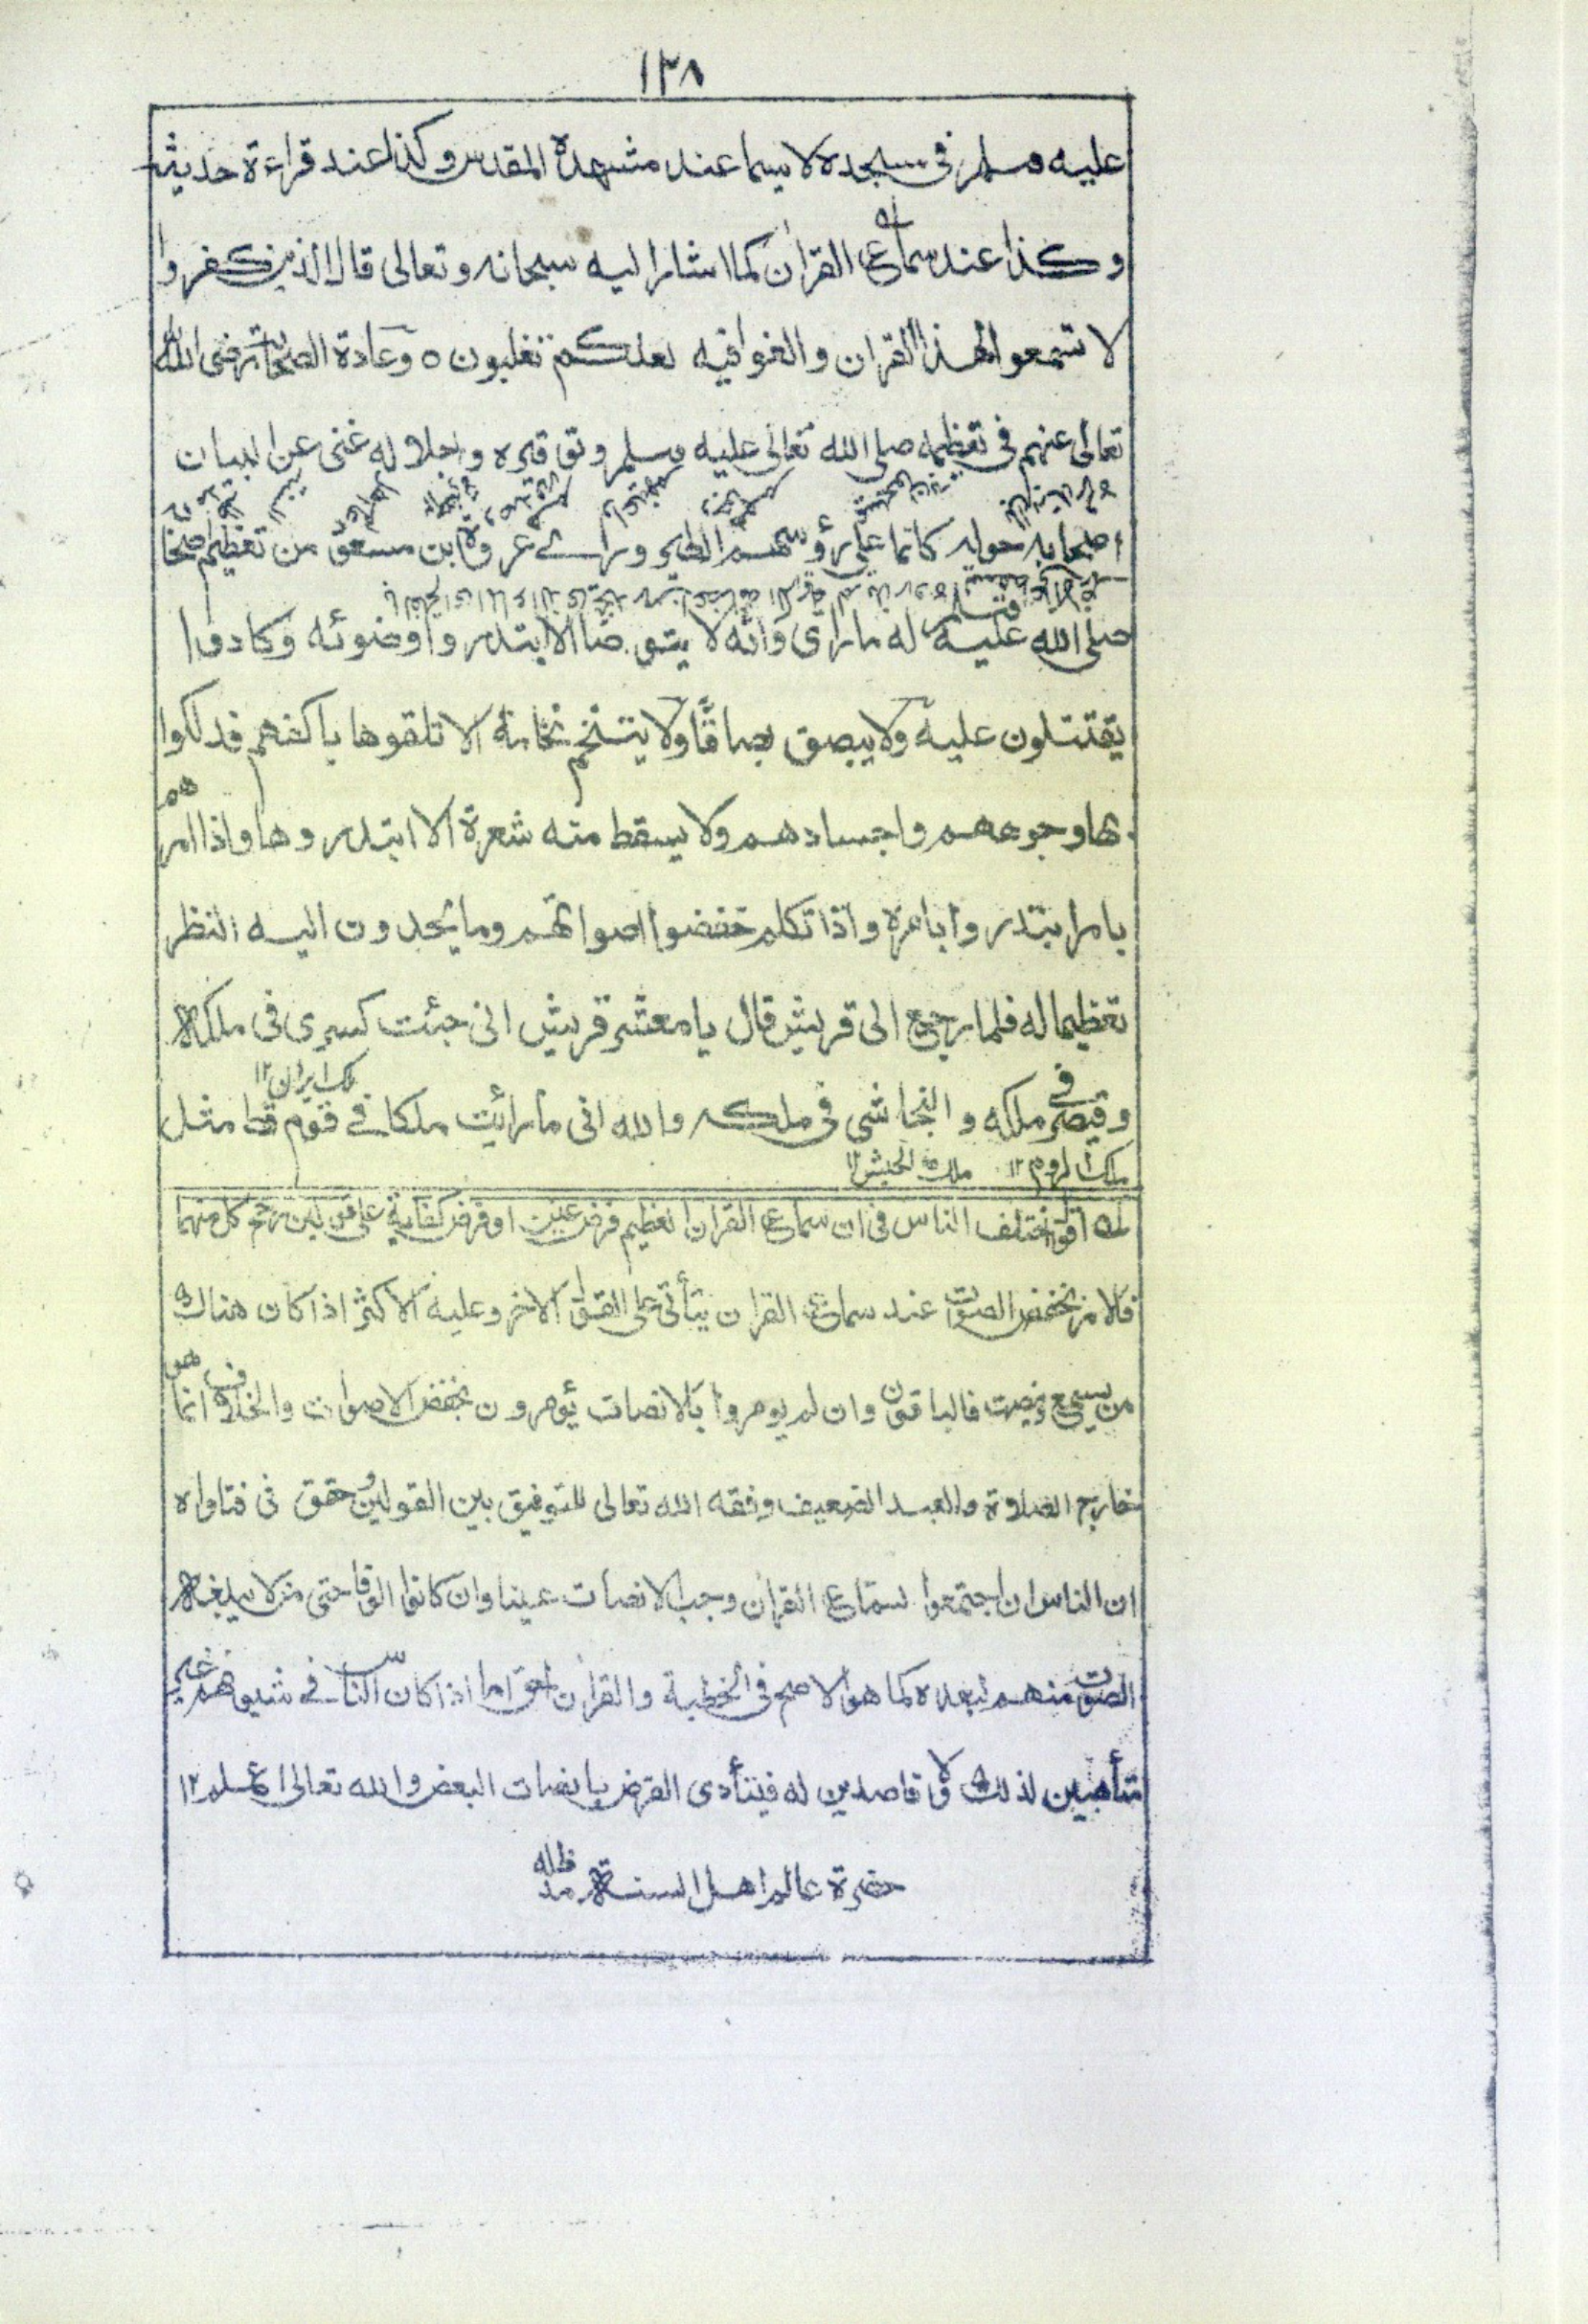 ١٣٨
عليه وسلم فى مسجده لا سيما عند مشهده المقدس وكذا عند قراءة حديثه
وكذا عند سماع القران كما اشار اليه سبحانه وتعالى قال الذين كفروا
لا تسمعوا لهذا القران والغوا فيه لعلكم تغلبون ٥ وعادة الصحابة رضى الله
تعالى عنهم فى تعظيمه صلى الله تعالى عليه وسلم وتوقيره واجلاله غنى عن البيان
اصحابه حوله كانما على رؤسهم الطير وراى عروة ابن مسعود من تعظيم اصحابه
صلى الله عليه وسلم له ما راى وانه لا يتوضأ الا ابتدروا وضوئه وكادوا
يقتتلون عليه ولا يبصق بصاقا ولا يتنخم نخامة الا تلقوها باكفهم فدلكوا
بها وجوههم واجسادهم ولا يسقط منه شعرة الا ابتدروها واذا امرهم
بامر ابتدروا بامره واذا تكلم خفضوا اصواتهم وما يحدون اليه النظر
تعظيما له فلما رجع الى قريش قال يا معشر قريش انى جئت كسرى فى ملكه
ملك ايران ١٢
وقيصر فى ملكه والنجاشى فى ملكه والله انى ما رأيت ملكا فى قوم قط مثل
ملك الروم ١٢ ملك الحبش ١٢
له اقول اختلف الناس فى ان سماع القران العظيم فرض عين او فرض كفاية على قولين رجح كل منهما
فالامر بخفض الصوت عند سماع القران يتأتى على القول الاخر وعليه الاكثر اذا كان هناك
من يسمع وينصت فالباقون وان لم يومروا بالانصات يؤمرون بخفض الاصوات والخلاف انما هو
خارج الصلاة والعبد الضعيف وفقه الله تعالى للتوفيق بين القولين وحقق فى فتاواه
ان الناس ان اجتمعوا لسماع القران وجب الانصات عينا وان كانوا الوفا حتى من لا يبلغه
الصوت منهم لبعده كما هو الاصح فى الخطبة والقران اما اذا كان الناس فى شيونهم غير
متأهبين لذلك ولا قاصدين له فيتأدى الفرض بانصات البعض والله تعالى اعلم ١٢
حضرة عالم اهل السنة مد ظله